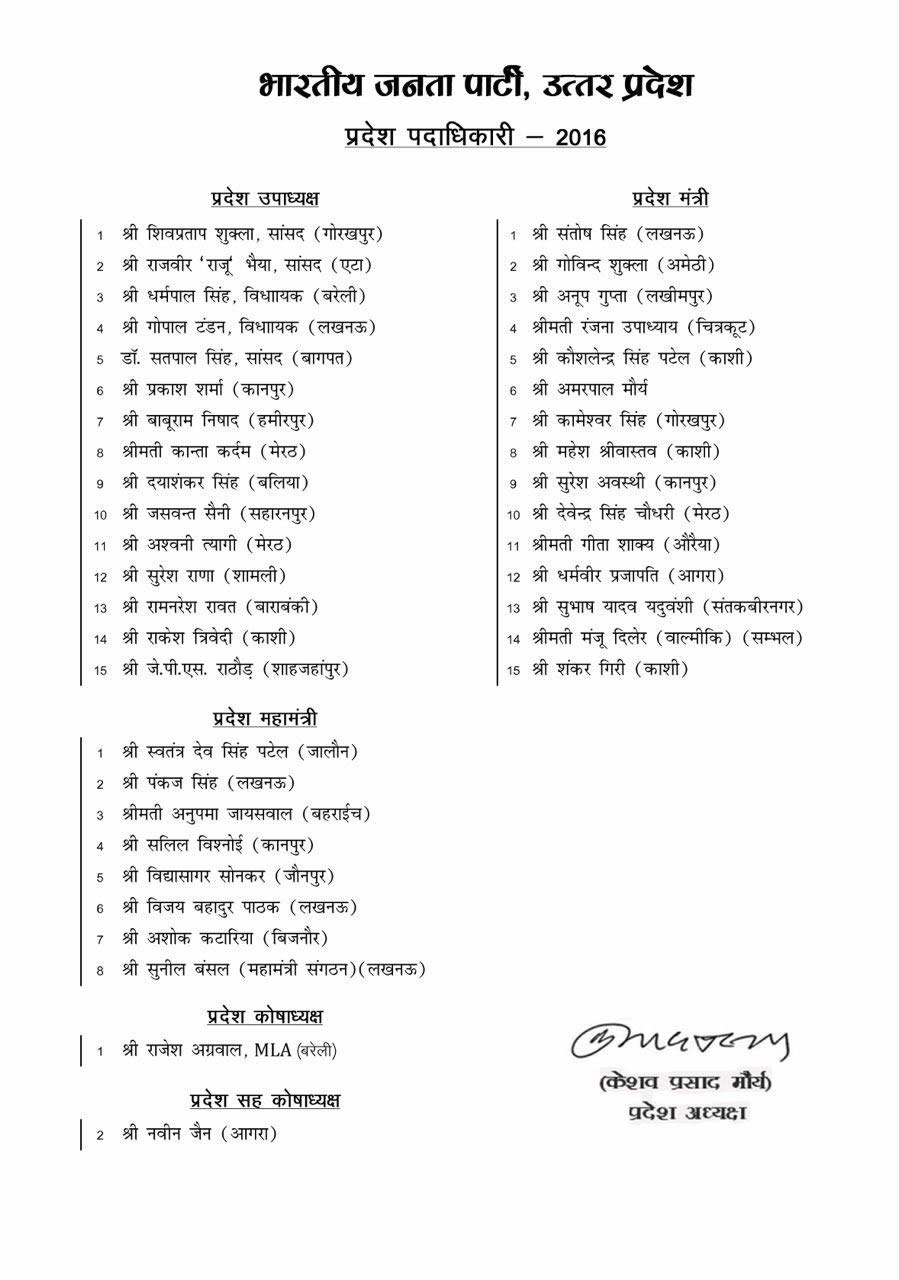 भारतीय जनता पार्टी, उत्तर प्रदेश
प्रदेश पदाधिकारी – 2016
प्रदेश उपाध्यक्ष
1 श्री शिवप्रताप शुक्ला, सांसद (गोरखपुर)
2 श्री राजवीर 'राजू' भैया, सांसद (एटा)
3 श्री धर्मपाल सिंह, विधाायक (बरेली)
4 श्री गोपाल टंडन, विधाायक (लखनऊ)
5 डॉ. सतपाल सिंह, सांसद (बागपत)
6 श्री प्रकाश शर्मा (कानपुर)
7 श्री बाबूराम निषाद (हमीरपुर)
8 श्रीमती कान्ता कर्दम (मेरठ)
9 श्री दयाशंकर सिंह (बलिया)
10 श्री जसवन्त सैनी (सहारनपुर)
11 श्री अश्वनी त्यागी (मेरठ)
12 श्री सुरेश राणा (शामली)
13 श्री रामनरेश रावत (बाराबंकी)
14 श्री राकेश त्रिवेदी (काशी)
15 श्री जे.पी.एस. राठौड़ (शाहजहांपुर)
प्रदेश महामंत्री
1 श्री स्वतंत्र देव सिंह पटेल (जालौन)
2 श्री पंकज सिंह (लखनऊ)
3 श्रीमती अनुपमा जायसवाल (बहराईच)
4 श्री सलिल विश्नोई (कानपुर)
5 श्री विद्यासागर सोनकर (जौनपुर)
6 श्री विजय बहादुर पाठक (लखनऊ)
7 श्री अशोक कटारिया (बिजनौर)
8 श्री सुनील बंसल (महामंत्री संगठन)(लखनऊ)
प्रदेश कोषाध्यक्ष
1 श्री राजेश अग्रवाल, MLA (बरेली)
प्रदेश सह कोषाध्यक्ष
2 श्री नवीन जैन (आगरा)
प्रदेश मंत्री
1 श्री संतोष सिंह (लखनऊ)
2 श्री गोविन्द शुक्ला (अमेठी)
3 श्री अनूप गुप्ता (लखीमपुर)
4 श्रीमती रंजना उपाध्याय (चित्रकूट)
5 श्री कौशलेन्द्र सिंह पटेल (काशी)
6 श्री अमरपाल मौर्य
7 श्री कामेश्वर सिंह (गोरखपुर)
8 श्री महेश श्रीवास्तव (काशी)
9 श्री सुरेश अवस्थी (कानपुर)
10 श्री देवेन्द्र सिंह चौधरी (मेरठ)
11 श्रीमती गीता शाक्य (औरैया)
12 श्री धर्मवीर प्रजापति (आगरा)
13 श्री सुभाष यादव यदुवंशी (संतकबीरनगर)
14 श्रीमती मंजू दिलेर (वाल्मीकि) (सम्भल)
15 श्री शंकर गिरी (काशी)
(केशव प्रसाद मौर्य)
प्रदेश अध्यक्ष